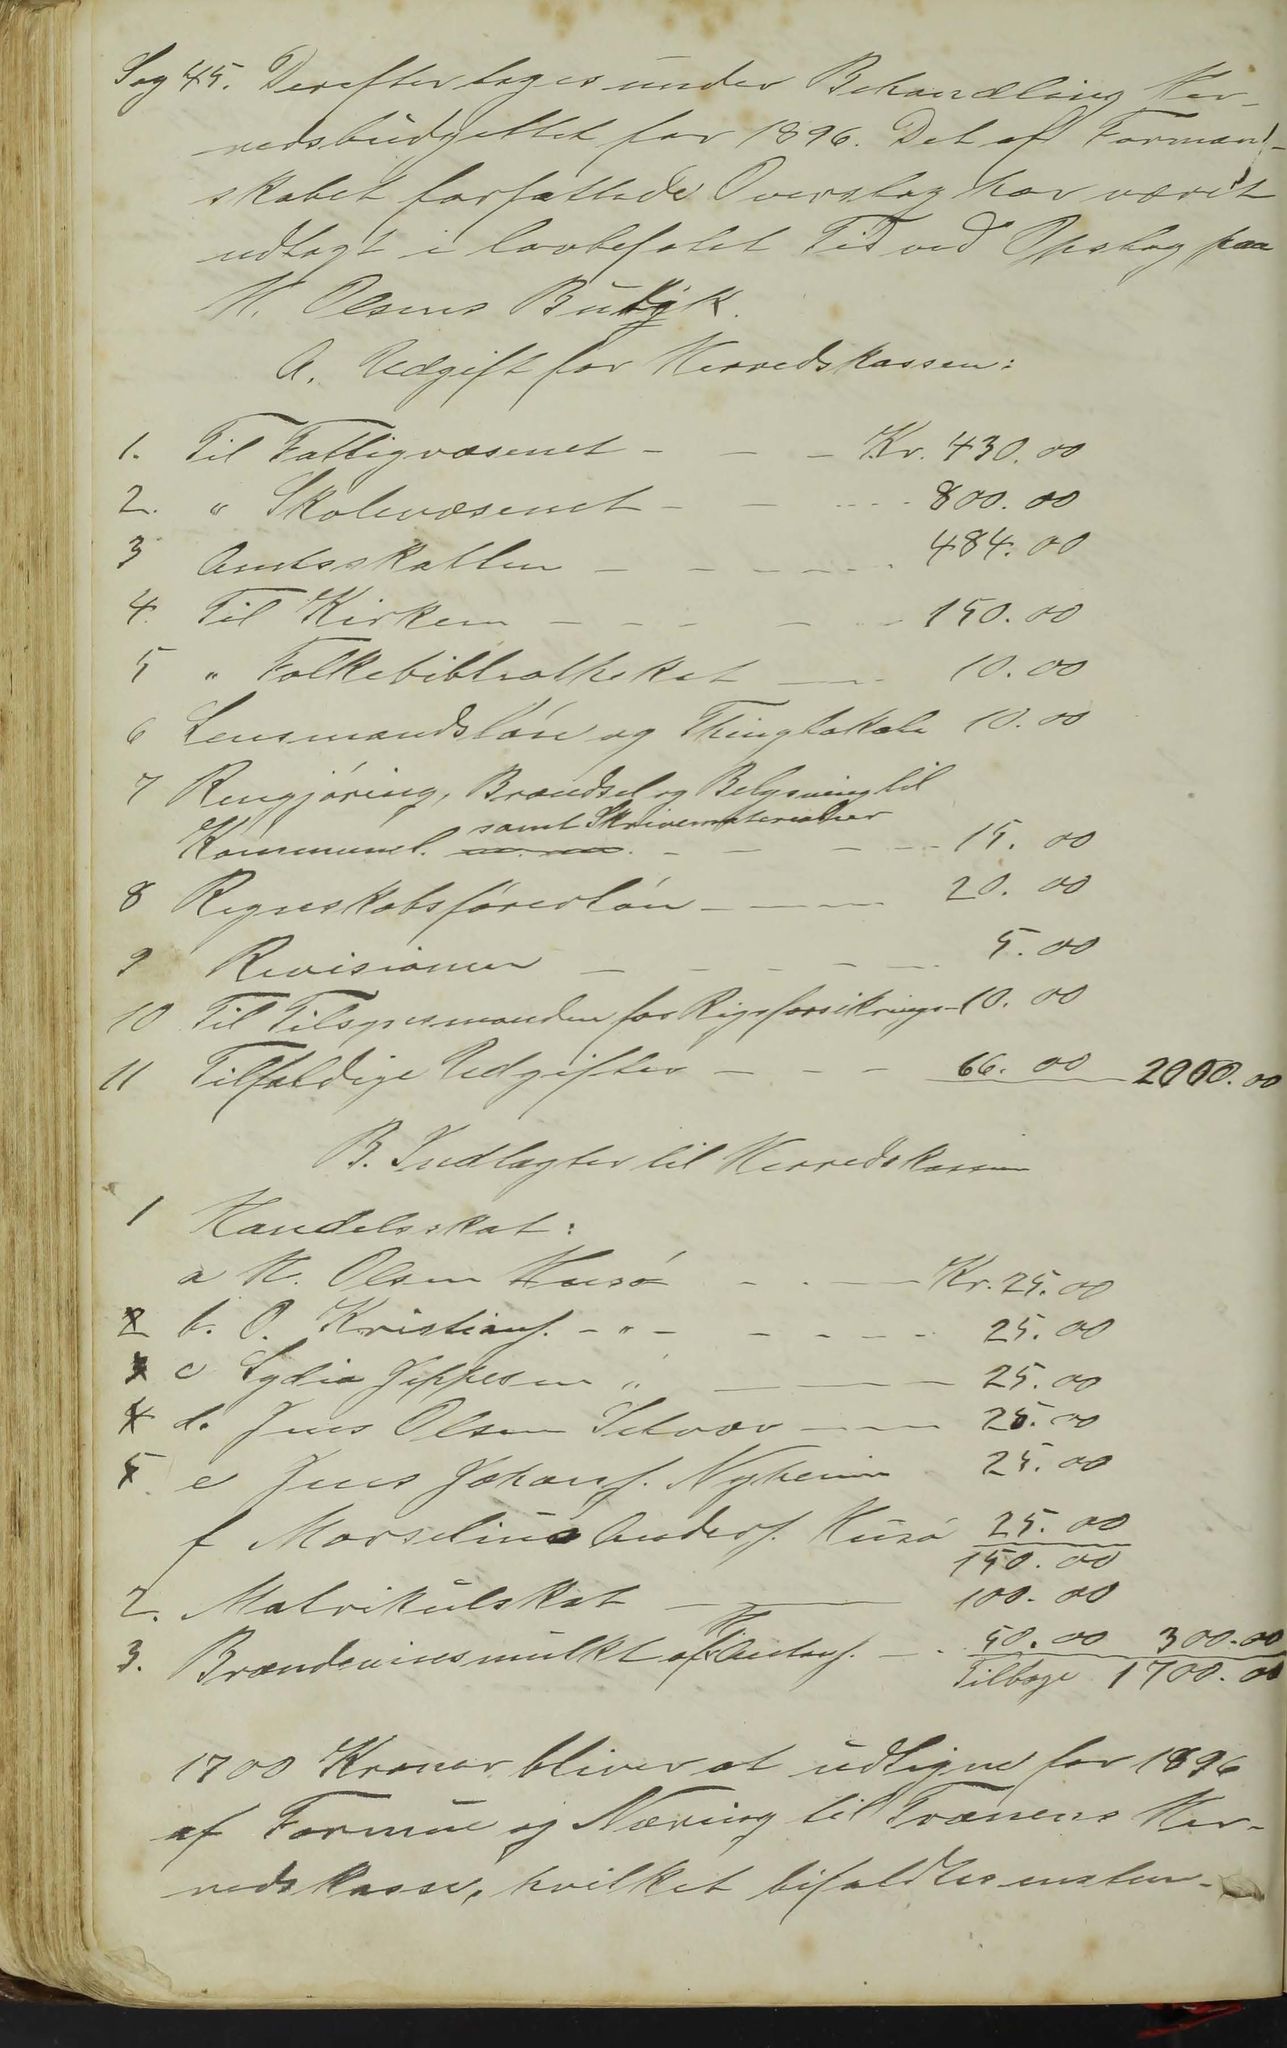 Sag 45. Derefter toges under Behandling Her-
redsbudgettet for 1896. Det af Formand-
skabet forfattede Overslag har været
udlagt i lovbefalet Tid ved Opslag paa
H. Olsens Butik.
A. Udgift for Herredskassen:
1. Til Fattigvæsenet - - - Kr. 430.00
2. " Skolevæsenet - - - 800.00
3 Amtsskatten - - - - - 484.00
4. Til Kirken - - - - - 150.00
5 " Folkebibliotheket - - 10.00
6 Lensmandsløn og Thinglokale 10.00
7 Rengjøring, Brændsel og Belysning til
samt Skrivematerialier
Kommunel. m. m. - - - - 15.00
8 Regnskabsførerløn - - - 20.00
9 Revisionen - - - - - 5.00
10 Til Tilsynsmanden for Rigsforsikrings- 10.00
11 Tilfældige Udgifter - - - 66.00 2000.00
B. Indtægter til Herredskassen
1 Handelsskat:
a H. Olsen Husø - - - Kr. 25.00
2 b. O. Kristians. - " - - - - - 25.00
3 c Lydia Jeppesen " - - - 25.00
4 d. Jens Olsen Selvær - - 25.00
5 e Jens Johans. Nyheim 25.00
f Morselius Anders. Husø 25.00
150.00
2. Matrikulskat - - 100.00
3. Brændevinsmulkt af Antons. - . 50.00 300.00
Tilbage 1700.00
1700 Kroner bliver at udligne for 1896
af Formue og Næring til Trænens Her-
redskasse, hvilket bifaldtes enstem-